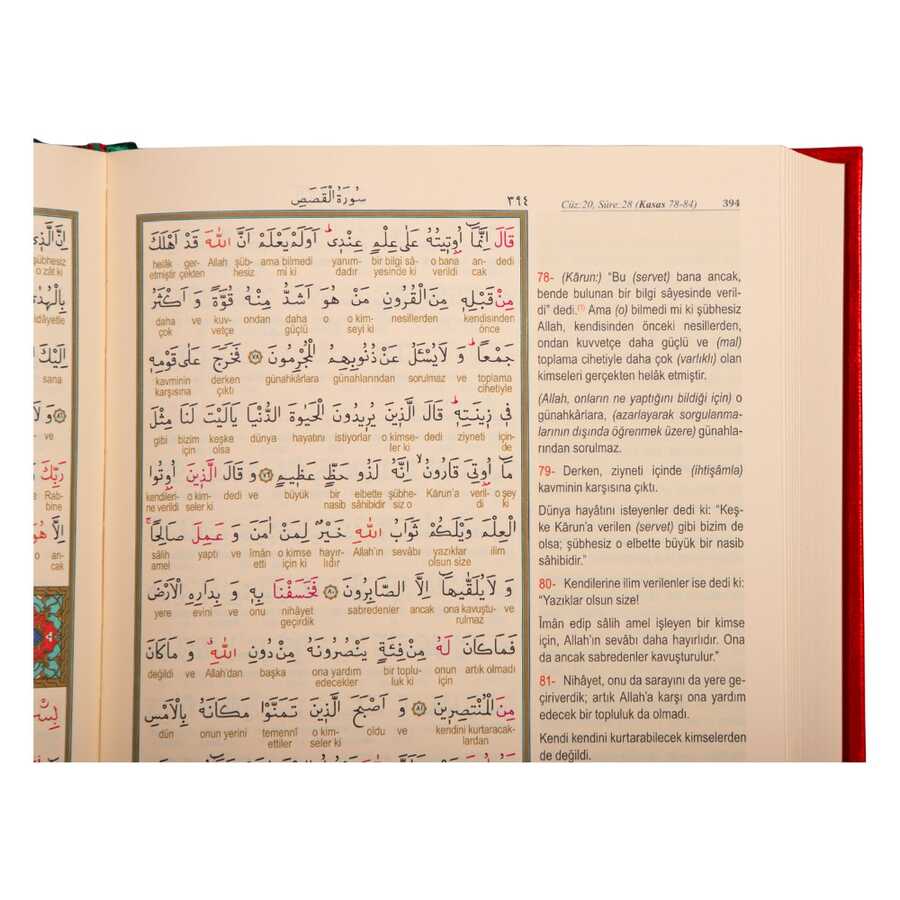 سُورَةُ الْقَصَصِ ٣٩٤
Cüz: 20, Sûre: 28 (Kasas 78-84) 394
قَالَ اِنَّمَٓا اُو۫ت۪يتُهُ عَلٰى عِلْمٍ عِنْد۪يۜ اَوَلَمْ يَعْلَمْ اَنَّ اللّٰهَ قَدْ اَهْلَكَ
helâk ger- Allah şüb- ama bilmedi yanım- bir bilgi sâ- o bana an- dedi
etmiştir çekten hesiz mi ki dadır yesinde ki verildi cak
مِنْ قَبْلِه۪ مِنَ الْقُرُونِ مَنْ هُوَ اَشَدُّ مِنْهُ قُوَّةً وَ اَكْثَرُ
daha ve kuv- ondan daha o o kim- nesillerden kendisinden
çok vetçe güçlü seyi ki önce
جَمْعًاۜ وَ لَا يُسْـَٔلُ عَنْ ذُنُوبِهِمُ الْمُجْرِمُونَ ﴿٧٨﴾ فَخَرَجَ عَلٰى قَوْمِه۪
kavminin derken günahkârlara günahlarından sorulmaz ve toplama
karşısına çıktı cihetiyle
ف۪ي ز۪ينَتِه۪ۜ قَالَ الَّذ۪ينَ يُر۪يدُونَ الْحَيٰوةَ الدُّنْيَا يَالَيْتَ لَنَا مِثْلَ
gibi bizim keşke dünya hayatını istiyorlar o kimse- dedi ziyneti için-
için olsa ler ki de
مَٓا اُو۫تِيَ قَارُونُۙ اِنَّهُ لَذُو حَظٍّ عَظ۪يمٍ ﴿٧٩﴾ وَ قَالَ الَّذ۪ينَ اُو۫تُوا
kendileri- o kim- dedi ve büyük bir elbette şübhe- Kârun'a veril- o şey
ne verildi seler ki nasib sahibidir siz o di ki
الْعِلْمَ وَيْلَكُمْ ثَوَابُ اللّٰهِ خَيْرٌ لِمَنْ اٰمَنَ وَ عَمِلَ صَالِحًاۚ
sâlih yaptı ve îmân o kimse hayır- Allah'ın sevâbı yazıklar ilim
amel etti için ki lıdır olsun size
وَ لَا يُلَقّٰيهَٓا اِلَّا الصَّابِرُونَ ﴿٨٠﴾ فَخَسَفْنَا بِه۪ وَ بِدَارِهِ الْاَرْضَ
yere evini ve onu nihâyet sabredenler ancak ona kavuştu- ve
geçirdik rulmaz
فَمَا كَانَ لَهُ مِنْ فِئَةٍ يَنْصُرُونَهُ مِنْ دُونِ اللّٰهِۗ وَ مَا كَانَ
değildi ve Allah'dan başka ona yardım bir toplu- onun artık olmadı
edecekler luk ki için
مِنَ الْمُنْتَصِر۪ينَ ﴿٨١﴾ وَ اَصْبَحَ الَّذ۪ينَ تَمَنَّوْا مَكَانَهُ بِالْاَمْسِ
dün onun yerini temennî o kim- oldu ve kendini kurtaracak-
ettiler seler ki lardan
78- (Kârun:) "Bu (servet) bana ancak,
bende bulunan bir bilgi sâyesinde veril-
di" dedi.(1) Ama (o) bilmedi mi ki şübhesiz
Allah, kendisinden önceki nesillerden,
ondan kuvvetçe daha güçlü ve (mal)
toplama cihetiyle daha çok (varlıklı) olan
kimseleri gerçekten helâk etmiştir.
(Allah, onların ne yaptığını bildiği için) o
günahkârlara, (azarlayarak sorgulanma-
larının dışında öğrenmek üzere) günahla-
rından sorulmaz.
79- Derken, ziyneti içinde (ihtişâmla)
kavminin karşısına çıktı.
Dünya hayâtını isteyenler dedi ki: "Keş-
ke Kârun'a verilen (servet) gibi bizim de
olsa; şübhesiz o elbette büyük bir nasib
sâhibidir."
80- Kendilerine ilim verilenler ise dedi ki:
"Yazıklar olsun size!
Îmân edip sâlih amel işleyen bir kimse
için, Allah'ın sevâbı daha hayırlıdır. Ona
da ancak sabredenler kavuşturulur."
81- Nihâyet, onu da sarayını da yere ge-
çiriverdik; artık Allah'a karşı ona yardım
edecek bir topluluk da olmadı.
Kendi kendini kurtarabilecek kimselerden
de değildi.